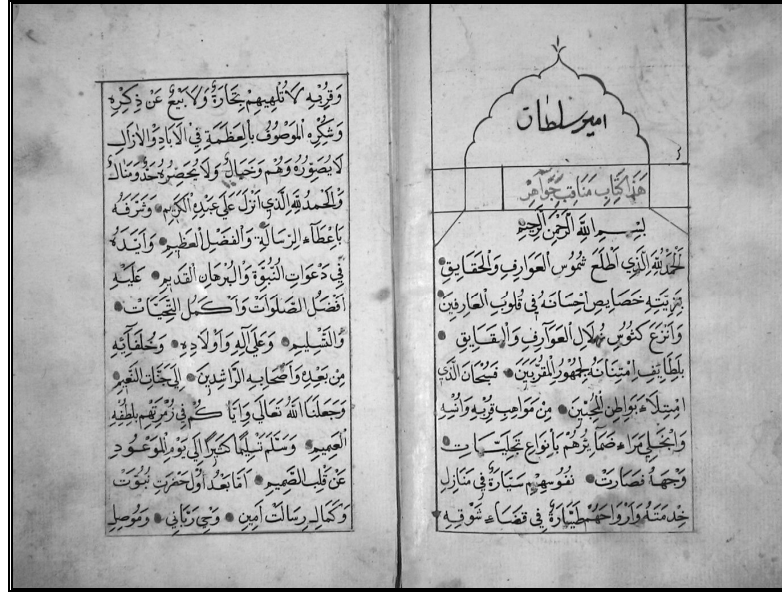 امير سلطان
هذا كتاب مناقب جواهر
بسم الله الرحمن الرحيم
الحمد لله الذي اطلع شموس العوارف والحقايق
بتربيته خصايص احسانه في قلوب العارفين
واترع كئوس زلال العوارف والحقايق
بلطايف امتنانه لجمهور المقربين فسبحان الذي
امتلاء بواطن المحبين من مواهب قربه وانسه
وانجلي مراء ضمايرهم بانواع تجليات
وجهه فصارت نفوسهم سيارة في منازل
خدمته وارواحهم طيارة في فضاء شوقه
وقربه لا تلهيهم تجارة ولا بيع عن ذكره
وشكره الموصوف بالعظمة في الاباد والازال
لا يصوره وهم وخيال ولا يحصره حد ومثال
والحمد لله الذي انزل علي عبده الكريم وشرفه
باعطاء الرسالة والفضل العظيم وايده
في دعوات النبوة والبرهان القديم عليه
افضل الصلوات واكمل التحيات
والتسليم وعلي اله واولاده وخلفائه
من بعده واصحابه الراشدين الي جنات النعيم
وجعلنا الله تعالي واياكم في زمرتهم بلطفه
العميم وسلم تسليما كثيرا الي يوم الموعود
عن قلب الصميم اما بعد اول حضرت نبوت
وكمال رسالت امين وحي رباني وموصل